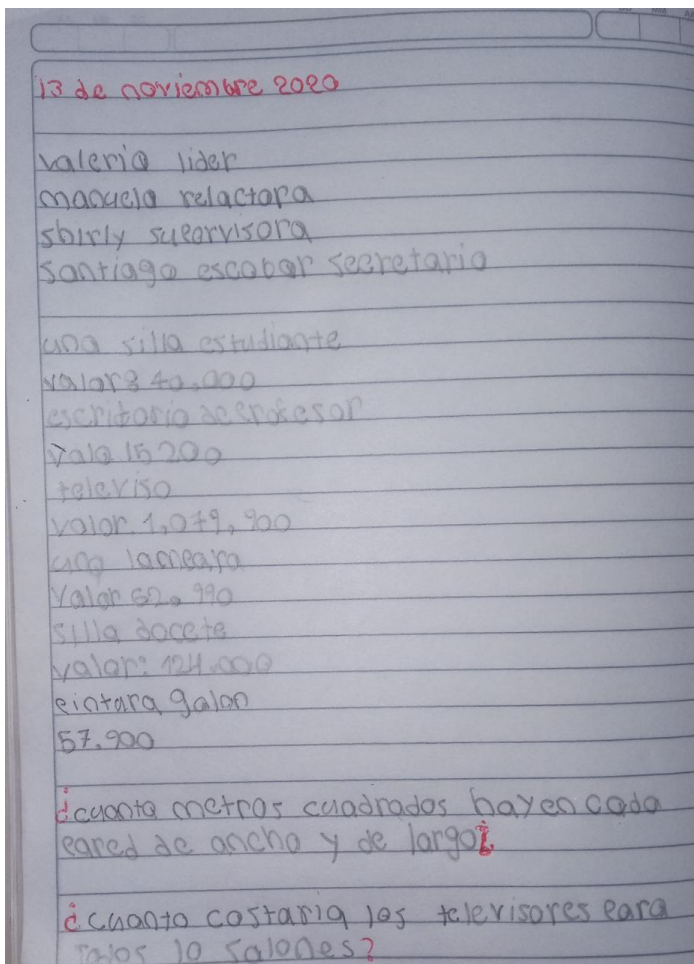 13 de noviembre 2020
valeria lider
manuela relactora
shirly suearvisora
santiago escobar secretario
una silla estudiante
valor $ 40.000
escritorio de erofesor
vale 15 200
televiso
valor. 1,079,900
una lameara
valor 52.990
silla docete
valor: 124.000
eintara galon
57.900
¿cuanto metros cuadrados hay en cada
eared de ancho y de largo¿
¿cuanto costaria los televisores eara
10 salones?